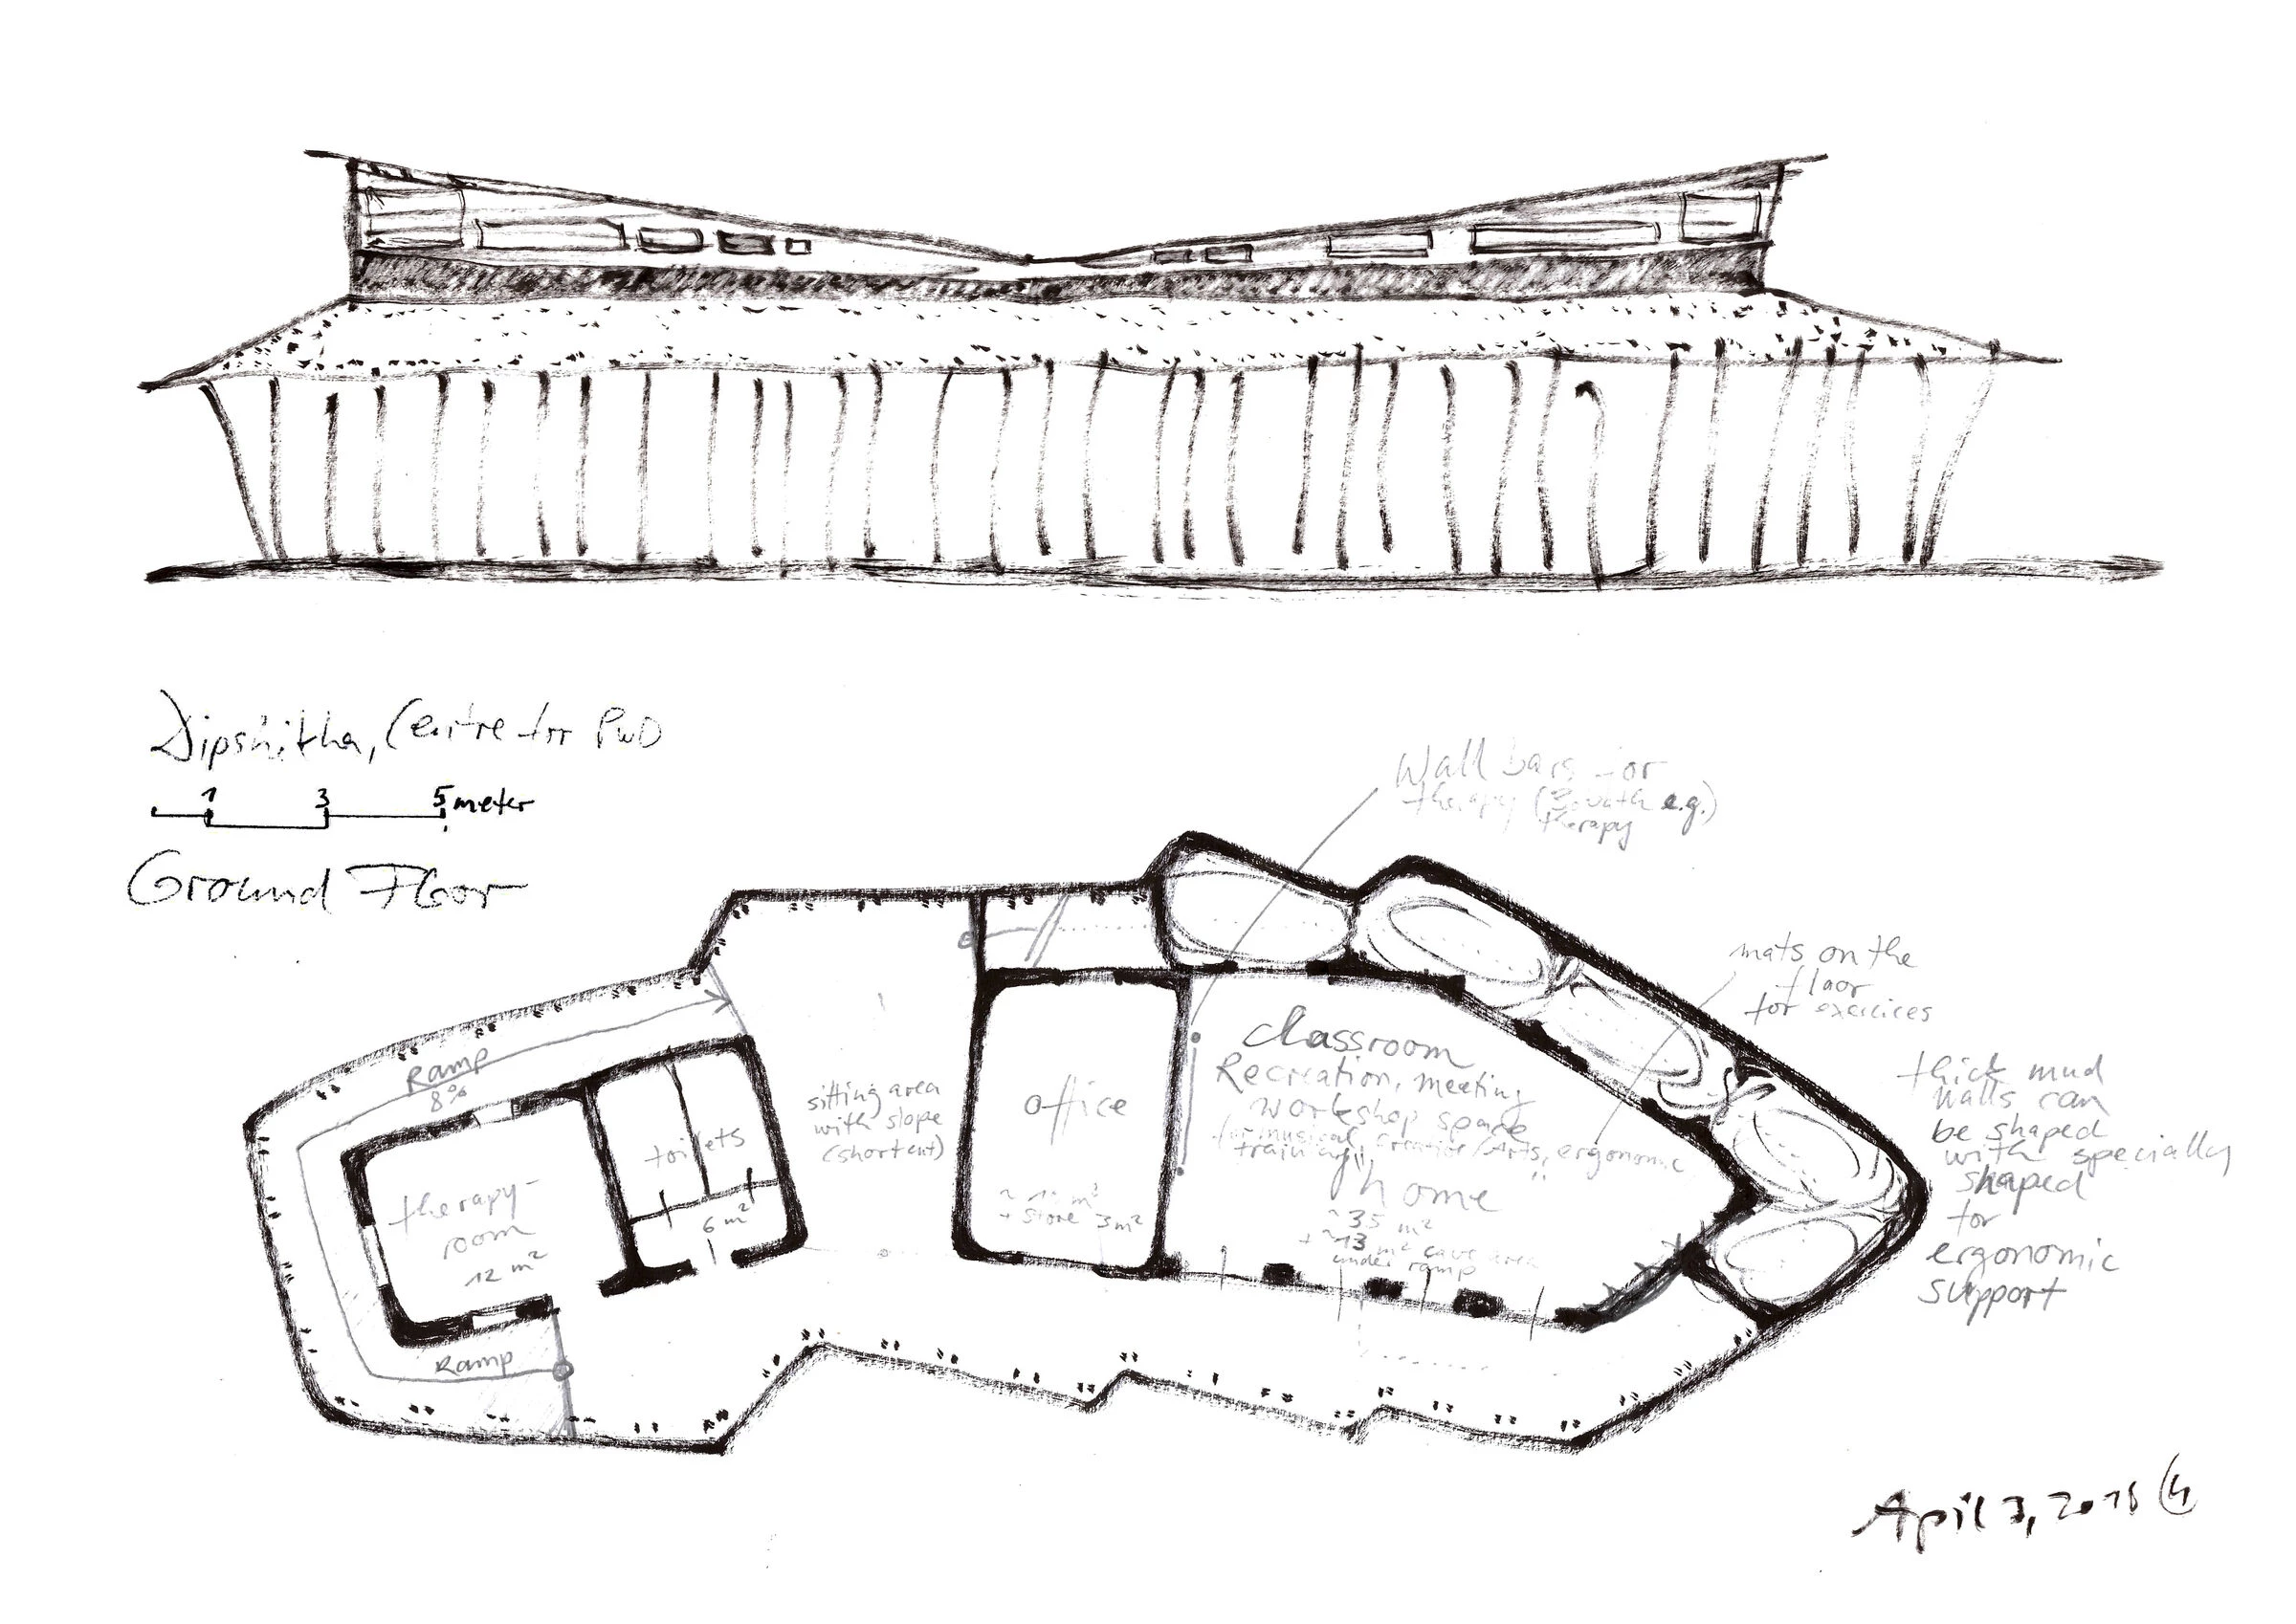 Dipshikha, Centre for PwD
1 3 5 meter
Ground Floor
Wall bars for
therapy (Bobath e.g.)
therapy
mats on the
floor
for excicices
thick mud
walls can
be shaped
with specially
shaped
for
ergonomic
support
Ramp
8%
toilets
6 m²
therapy-
room
12 m²
Ramp
sitting area
with slope
(short cut)
office
m²
+ store 3 m²
classroom
Recreation, meeting
workshop space
for musical, creative/Arts, ergonomic
training
"home"
~35 m²
+ ~13 m² cave area
under ramp
April 3, 2018